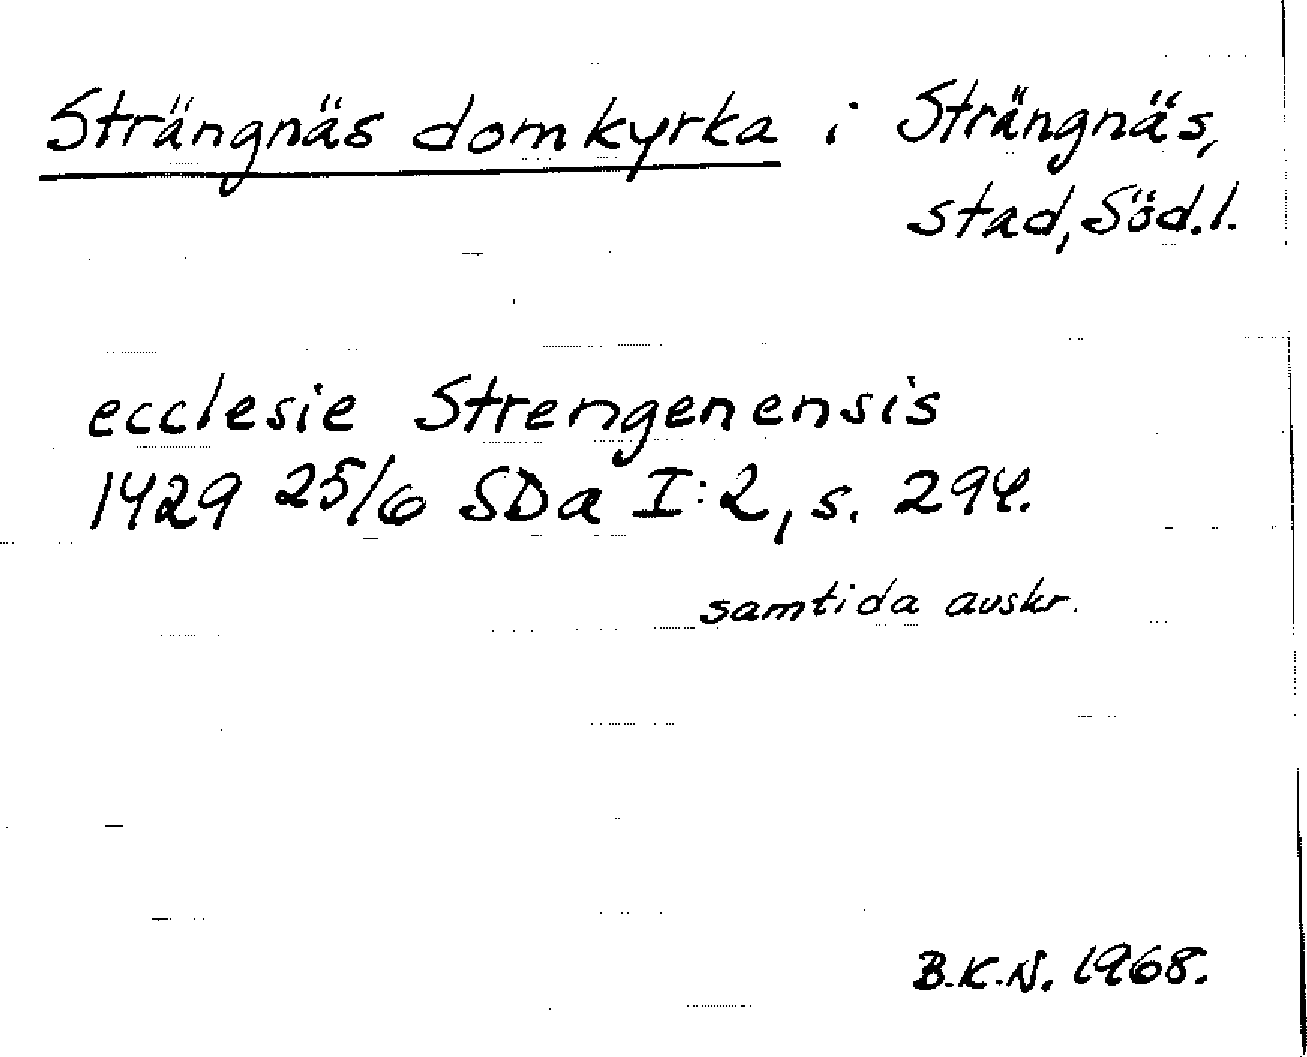 Strängnäs domkyrka i Strängnäs,
stad, Söd.l.
ecclesie Strengenensis
1429 25/6 SDa I:2, s. 294.
samtida avskr.
B.K.N. 1968.